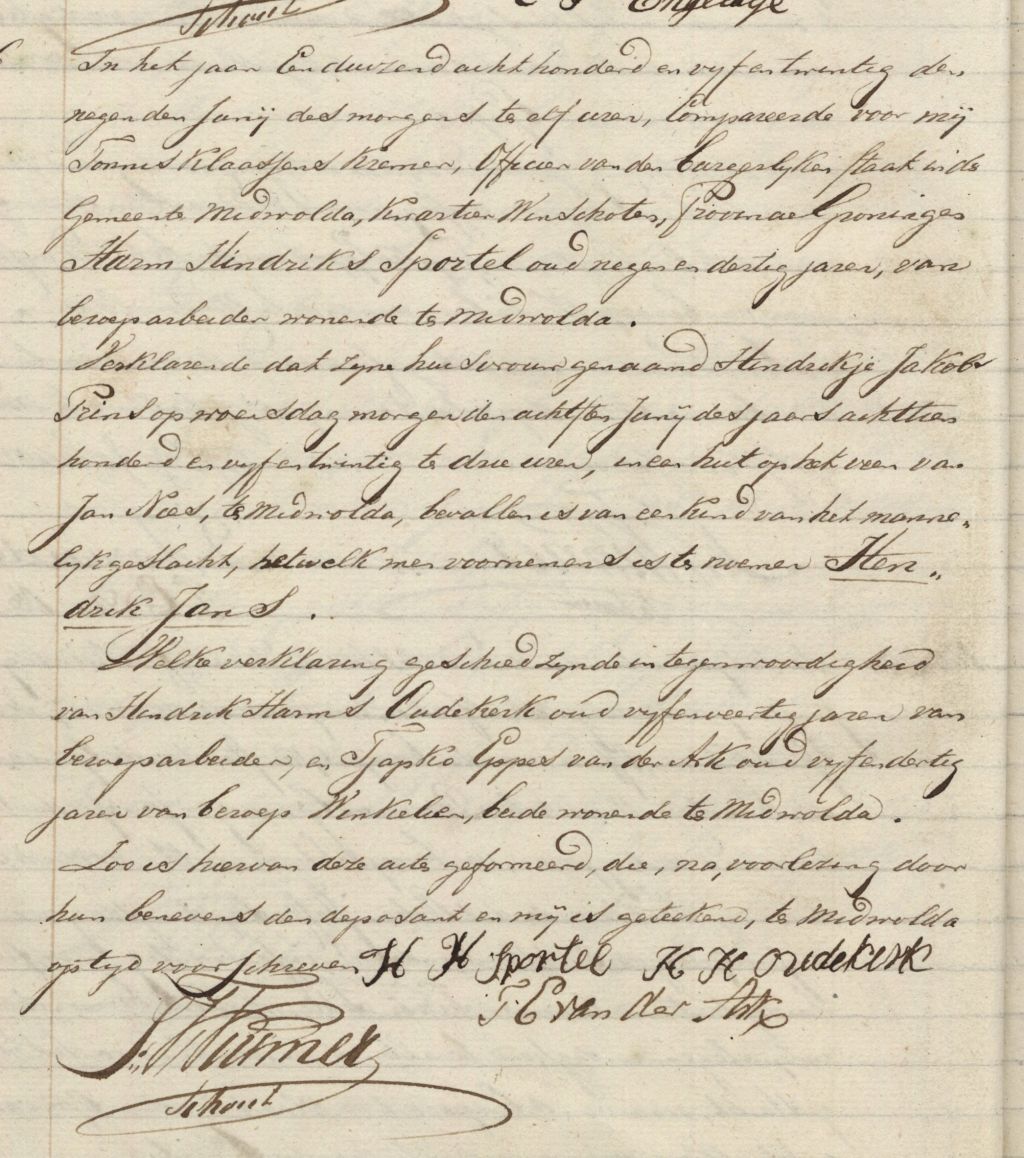 Schout
In het jaar Eenduizend acht honderd en vyf en twintig den
negenden Junij des morgens te elf uren, Compareerde voor mij
Tonnis Klaassens Kremer, Officier van den burgerlyken staat in de
Gemeente Midwolda, Kwartier Winschoten, Provincie Groningen
Harm Hindriks Sportel oud negen en dertig jaren, van
beroep arbeider wonende te Midwolda.
Verklarende dat zyne huisvrouw genaamd Hindrikje Jakobs
Prins op woensdag morgen den achtsten Junij des jaars achttien
honderd en vyf en twintig te drie uren, in een hut op het veen van
Jan Noes, te Midwolda, bevallen is van een kind van het manne„
lyk geslacht, hetwelk men voornemens is te noemen Hen„
drik Jans.
Welke verklaring geschied zynde in tegenwoordigheid
van Hindrik Harms Oudekerk oud vyf en veertig jaren van
beroep arbeider, en Tjapko Eppes van der Ark oud vyf en dertig
jaren van beroep Winkelier, beide wonende te Midwolda.
Zoo is hiervan deze acte geformeerd, die, na voorlezing door
hun benevens den deposant en mij is geteekend, te Midwolda
op tyd voorschreven H H Sportel H H Oudekerk
T. E van der Ark
Kremer
Schout